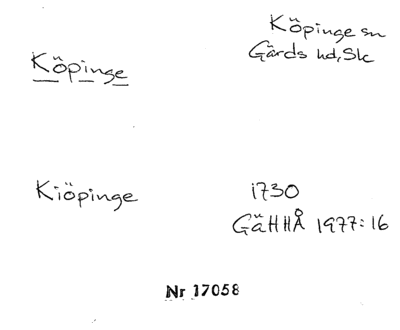 Köpinge sn
Gärds hd, Sk
Köpinge
Kiöpinge
1730
GäHHÅ 1977:16
Nr 17058